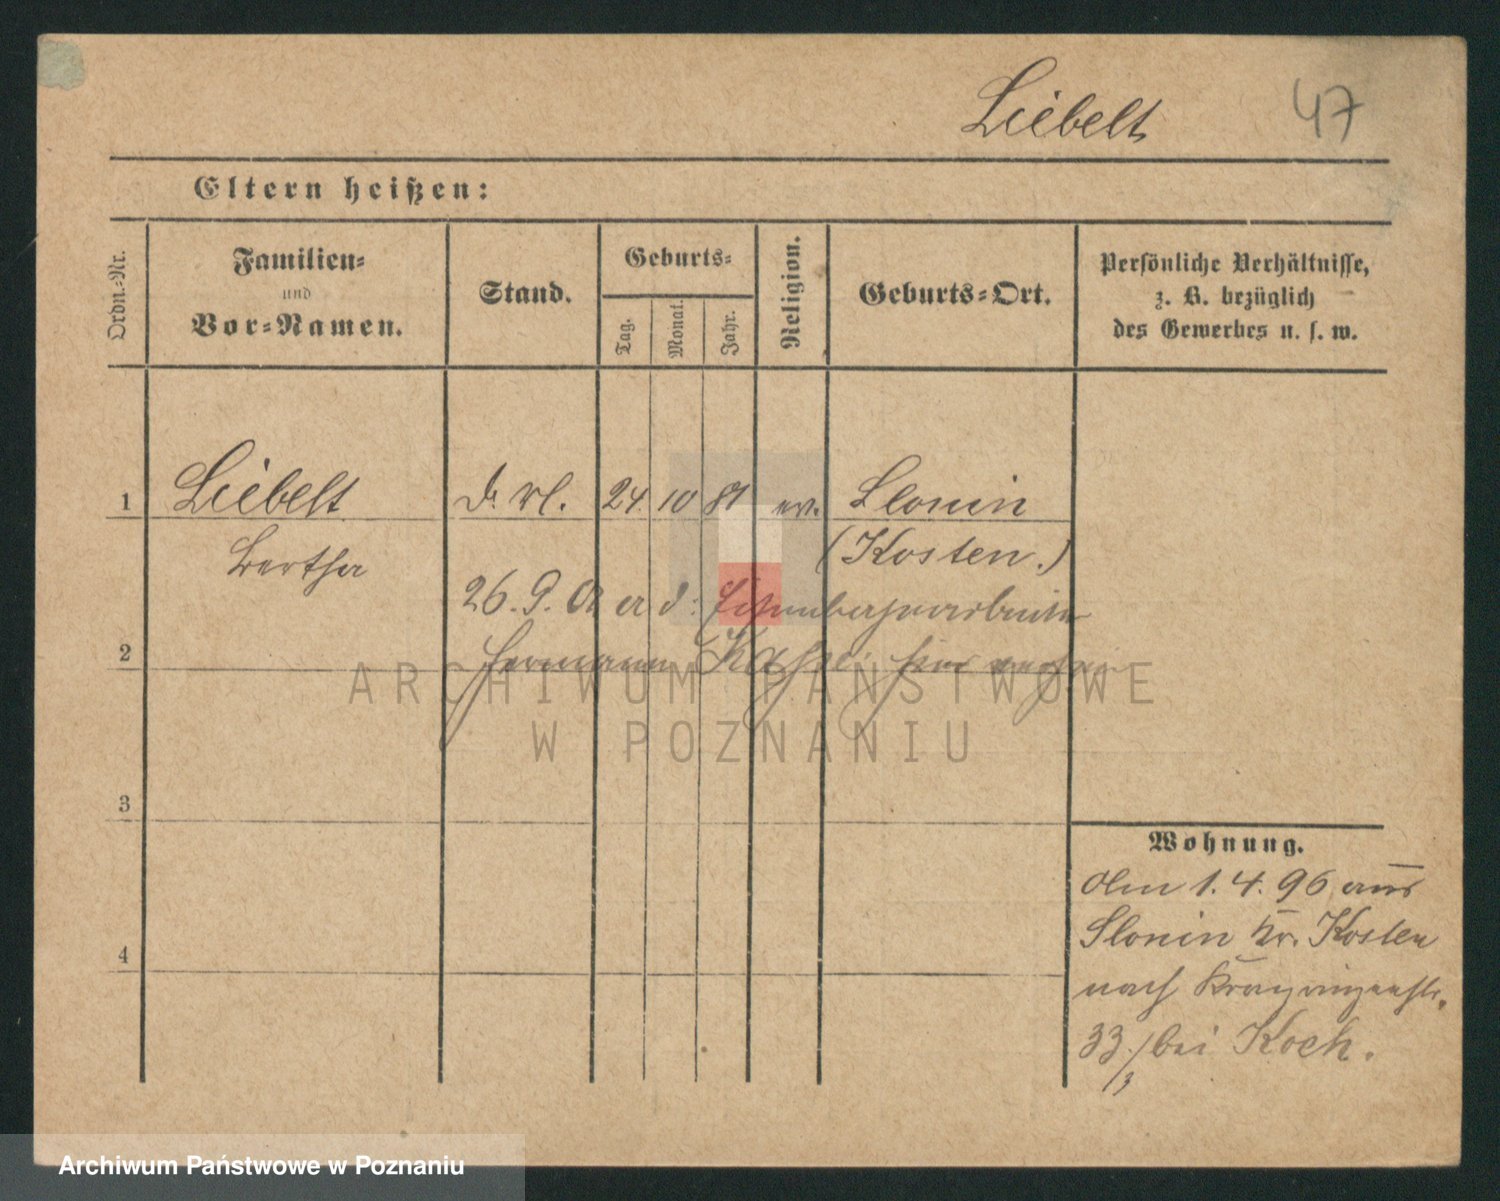 Liebelt 47
Eltern heißen:
Ordn.-Nr.
Familien-
und
Vor-Namen.
Stand.
Geburts-
Tag.
Monat.
Jahr.
Religion.
Geburts-Ort.
Persönliche Verhältnisse,
z. B. bezüglich
des Gewerbes u. s. w.
1 Liebelt 24. 10 81 ev. Slonin
Bertha (Kosten.)
26. 9. 02
2 Hermann
3
4
Wohnung.
Am 1. 4. 96 aus
Slonin Kr. Kosten
nach
33. bei Koch.
ARCHIWUM PAŃSTWOWE
W POZNANIU
Archiwum Państwowe w Poznaniu